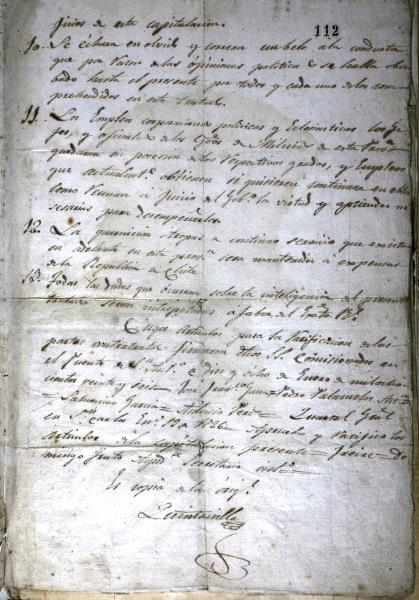 juicios de esta capitulacion.
112
10. Se échara en olvido y correra un belo a la conducta
que por razon de las opiniones politicas se halla obser
bado hasta el presente por todos y cada uno de los com
prehendidos en este tratado.
11. Los Empleos corporaciones politicas y Eclesiasticas los Ge
fes, y oficiales de los Cpos de Milicias de esta Prov.ª
quedaran en posesion de sus respectivos grados, y Empleos
que actualmt.e obtienen si quisieren continuar en ellos
como reunan a juicio del Gob.no la virtud y aptitudes ne
sesarias para desempeñarlos.
12. La guarnicion tropas a continuo servicio que exista
en adelante en esta prov.ª sera mantenida a expensas
de la Republica de Chile.
13. Todas las dudas que ocurran sobre la inteligencia del presente
tratado seran interpretadas a fabor del Exto Rl.
Cuyos Articulos para la ratificacion de las
partes contratantes firmaron dhos SS. Comisionados en
el Fuerte de Sn. Antº a Dies y ocho de Enero de mil ocho
cientos veinte y seis =
= Saturnino Garcia = Antonio Perez = Quartel Genl.
en Sn. Carlos En.º 19 de 1826. Apruebo y ratifico los
Articulos de la Capitulacion presente = Freire = Do
mingo Frutos Secretario
Es copia de la origl.
Quintanilla